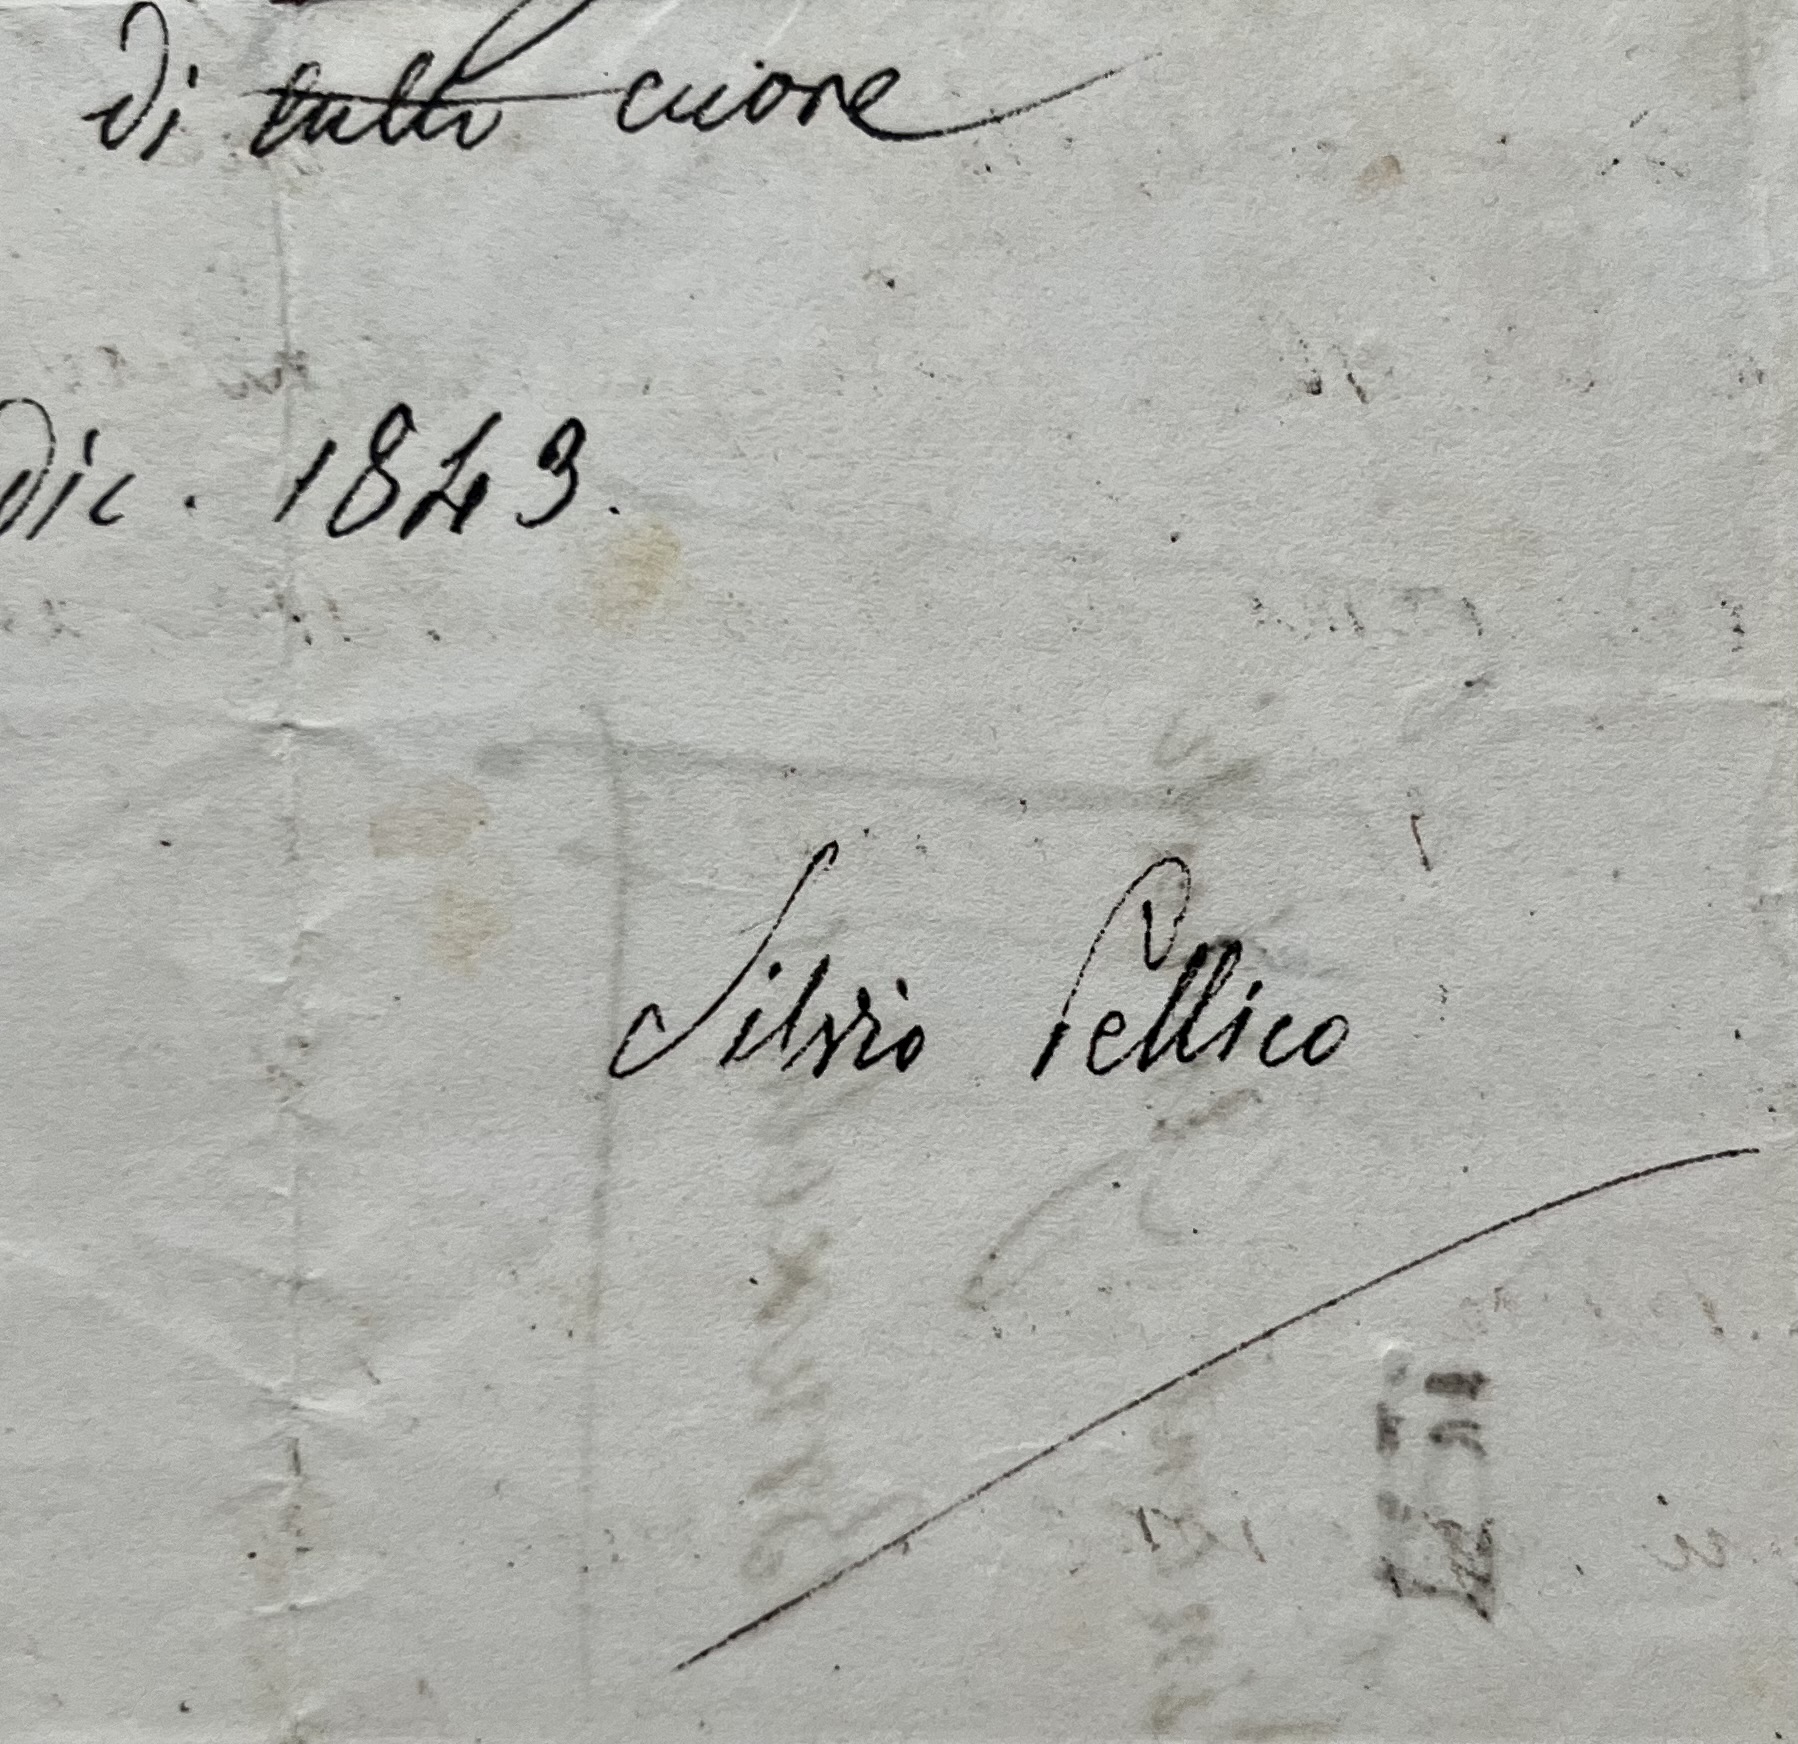 di tutto cuore
Dic. 1843.
Silvio Pellico